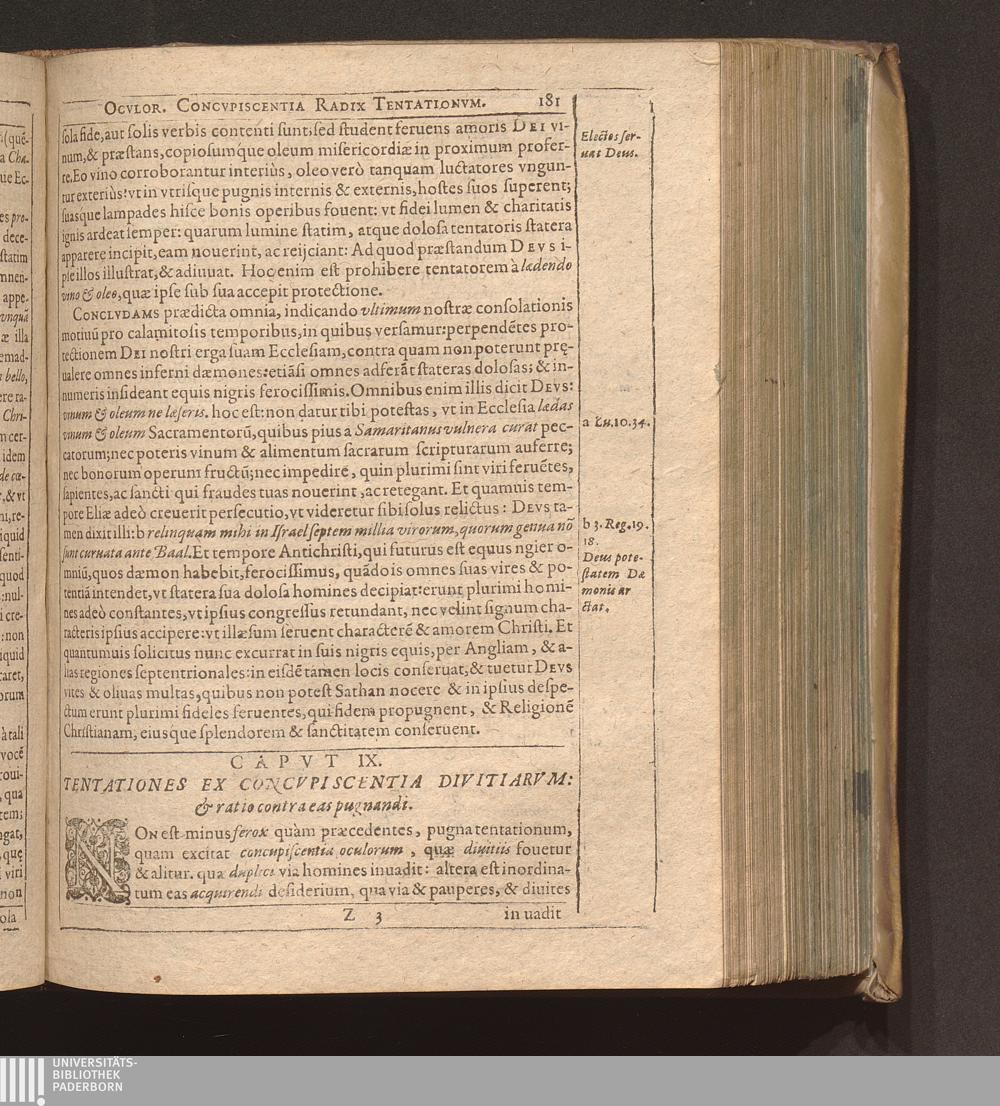 OCVLOR. CONCVPISCENTIA RADIX TENTATIONVM. 181
sola fide, aut solis verbis contenti sunt; sed student feruens amoris DEI vi-
num, & præstans, copiosumque oleum misericordiæ in proximum profer-
re. Eo vino corroborantur interiùs, oleo verò tanquam luctatores vngun-
tur exteriùs: vt in vtrisque pugnis internis & externis, hostes suos superent;
suasque lampades hisce bonis operibus fouent: vt fidei lumen & charitatis
ignis ardeat semper: quarum lumine statim, atque dolosa tentatoris statera
apparere incipit, eam nouerint, ac reijciant: Ad quod præstandum DEVS i-
pse illos illustrat, & adiuuat. Hoc enim est prohibere tentatorem à lædendo
vino & oleo, quæ ipse sub sua accepit protectione.
CONCLVDAMS prædicta omnia, indicando vltimum nostræ consolationis
motiuũ pro calamitosis temporibus, in quibus versamur: perpendẽtes pro-
tectionem DEI nostri erga suam Ecclesiam, contra quam non poterunt prę-
ualere omnes inferni dæmones: etiãsi omnes adferãt stateras dolosas; & in-
numeris insideant equis nigris ferocissimis. Omnibus enim illis dicit DEVS:
vinum & oleum ne læseris. hoc est: non datur tibi potestas, vt in Ecclesia lædas
vinum & oleum Sacramentorũ, quibus pius a Samaritanus vulnera curat pec-
catorum; nec poteris vinum & alimentum sacrarum scripturarum auferre;
nec bonorum operum fructũ; nec impedire, quin plurimi sint viri feruẽtes,
sapientes, ac sancti qui fraudes tuas nouerint, ac retegant. Et quamuis tem-
pore Eliæ adeò creuerit persecutio, vt videretur sibi solus relictus: DEVS ta-
men dixit illi: b relinquam mihi in Israel septem millia virorum, quorum genua nõ
sunt curuata ante Baal. Et tempore Antichristi, qui futurus est equus ngier o-
mniũ, quos dæmon habebit, ferocissimus, quãdo is omnes suas vires & po-
tentiã intendet, vt statera sua dolosa homines decipiat: erunt plurimi homi-
nes adeò constantes, vt ipsius congressus retundant, nec velint signum cha-
racteris ipsius accipere: vt illæsum seruent characterẽ & amorem Christi. Et
quantumuis solicitus nunc excurrat in suis nigris equis, per Angliam, & a-
lias regiones septentrionales: in eisdẽ tamen locis conseruat, & tuetur DEVS
vites & oliuas multas, quibus non potest Sathan nocere & in ipsius despe-
ctum erunt plurimi fideles feruentes, qui fidem propugnent, & Religionẽ
Christianam, eiusque splendorem & sanctitatem conseruent.
CAPVT IX.
TENTATIONES EX CONCVPISCENTIA DIVITIARVM:
& ratio contra eas pugnandi.
NON est minus ferox quàm præcedentes, pugna tentationum,
quam excitat concupiscentia oculorum, quæ diuitiis fouetur
& alitur. qua duplici via homines inuadit: altera est inordina-
tum eas acquirendi desiderium, qua via & pauperes, & diuites
Z 3 in uadit
Electos ser-
uat Deus.
a Lu.10.34.
b 3. Reg.19.
18.
Deus pote-
statem Dæ
monis ar
ctat.
(quẽ-
a Cha-
que Ec-
es pro-
dece-
statim
mnen-
appe-
vnquã
æ illa
emad-
bello,
ere ra-
Chri-
m cer-
idem
de cæ-
, & vt
ni, re-
iquid
senti-
quod
: nul-
i cre-
: non
iquid
taret,
orum
à tali
vocẽ
roui-
, qua
tem;
ngat,
, quę
viri
non
ola
UNIVERSITÄTS-
BIBLIOTHEK
PADERBORN